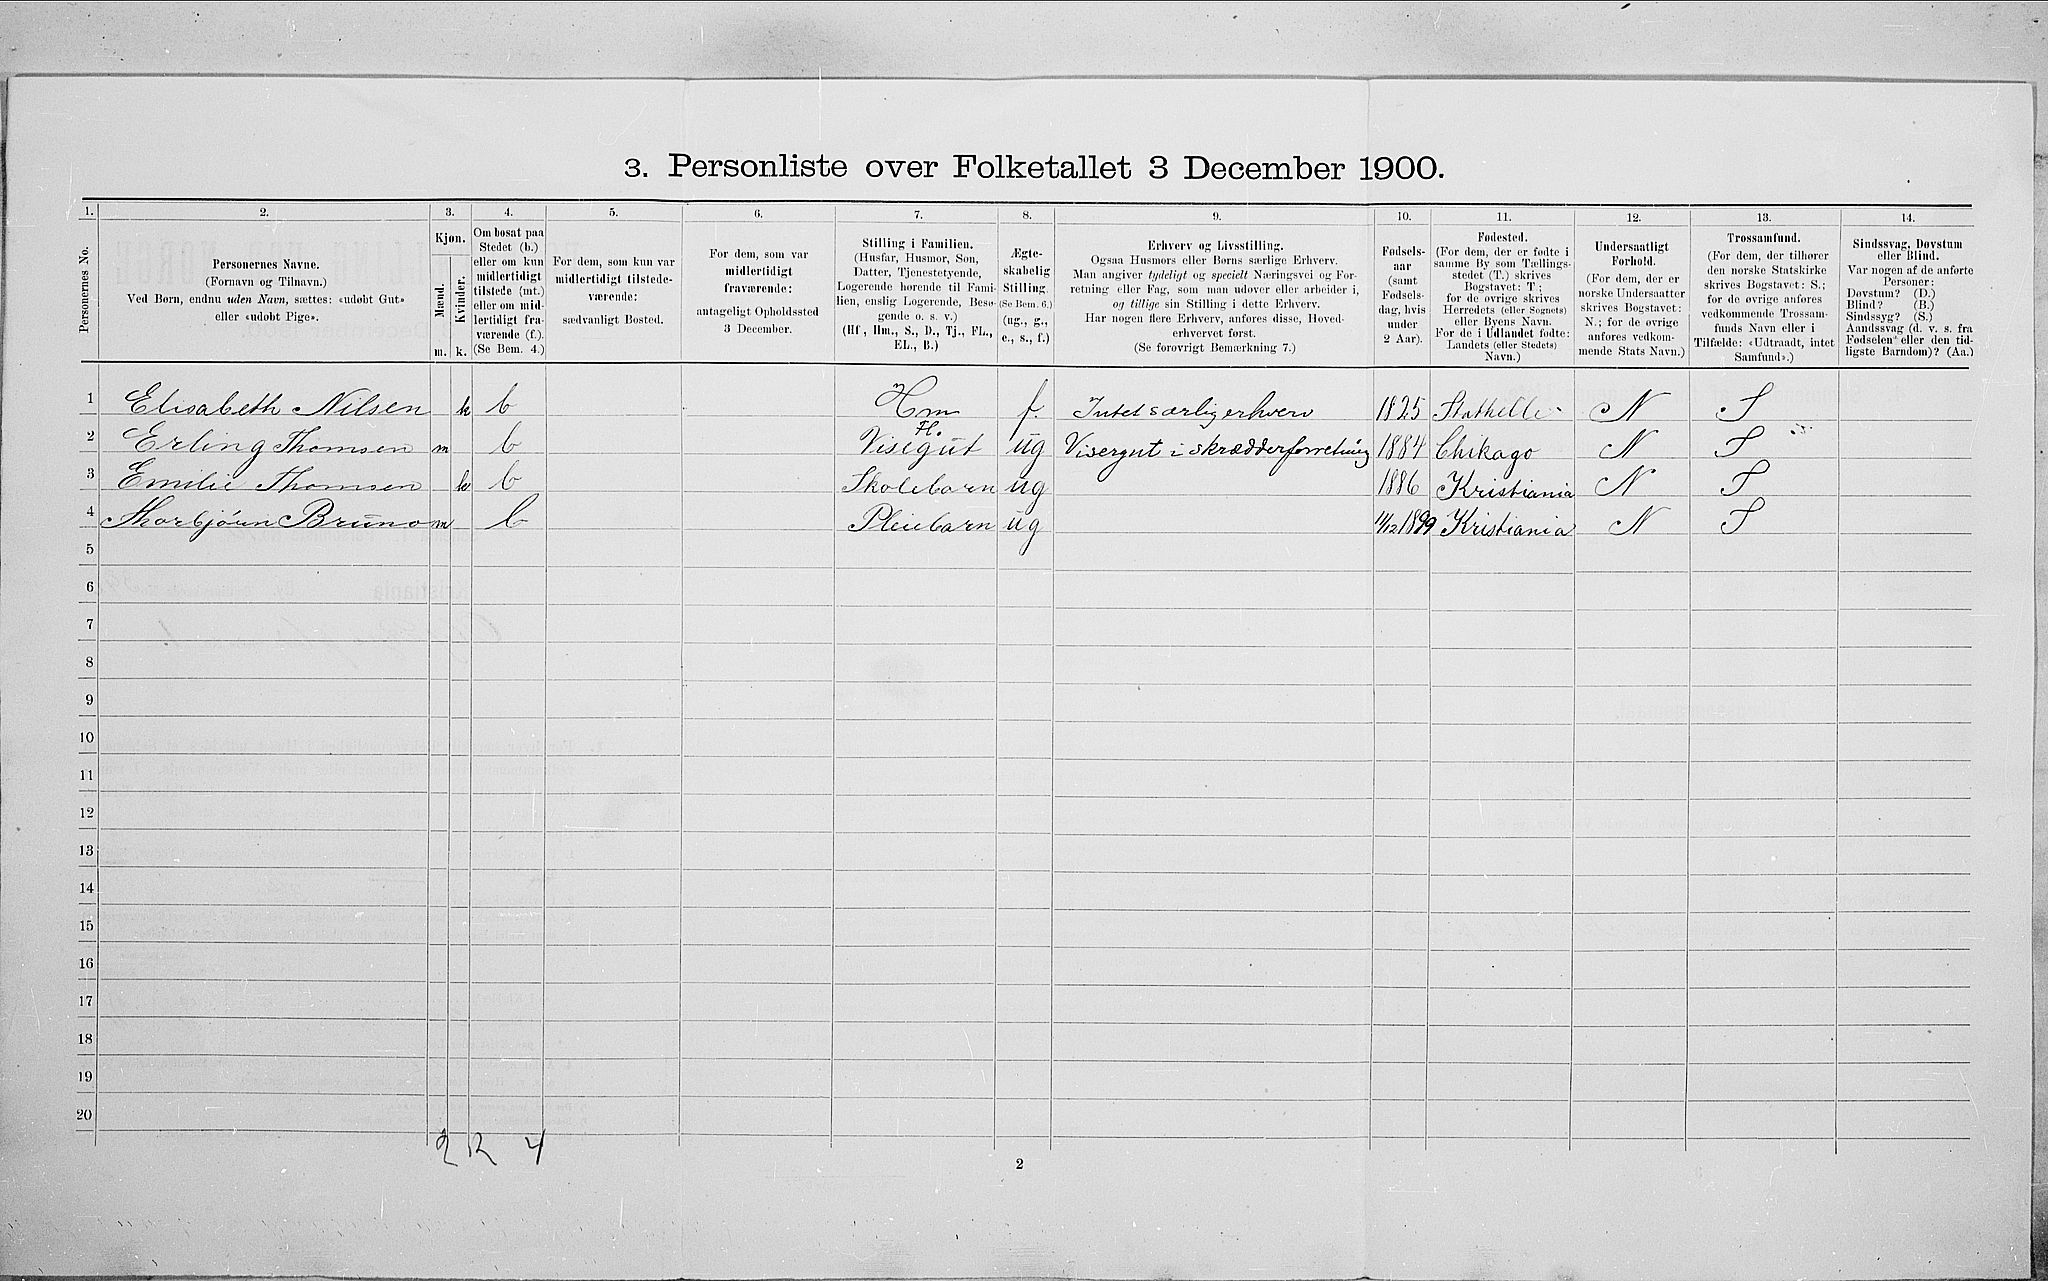 3. Personliste over Folketallet 3 December 1900.
1. 2. 3. 4. 5. 6. 7. 8. 9. 10. 11. 12. 13. 14.
Personernes No.
Personernes Navne.
(Fornavn og Tilnavn.)
Ved Børn, endnu uden Navn, sættes: «udøbt Gut»
eller «udøbt Pige».
Kjøn.
Mænd.
Kvinder.
m. k.
Om bosat paa
Stedet (b.)
eller om kun
midlertidigt
tilstede (mt.)
eller om mid-
lertidigt fra-
værende (f.).
(Se Bem. 4.)
For dem, som kun var
midlertidigt tilstede-
værende:
sædvanligt Bosted.
For dem, som var
midlertidigt
fraværende:
antageligt Opholdssted
3 December.
Stilling i Familien.
(Husfar, Husmor, Søn,
Datter, Tjenestetyende,
Logerende hørende til Fami-
lien, enslig Logerende, Besø-
gende o. s. v.)
(Hf, Hm., S., D., Tj., FL.,
EL., B.)
Ægte-
skabelig
Stilling.
(Se Bem. 6.)
(ug., g.,
e., s., f.)
Erhverv og Livsstilling.
Ogsaa Husmors eller Børns særlige Erhverv.
Man angiver tydeligt og specielt Næringsvei og For-
retning eller Fag, som man udøver eller arbeider i,
og tillige sin Stilling i dette Erhverv.
Har nogen flere Erhverv, anføres disse, Hoved-
erhvervet først.
(Se forøvrigt Bemærkning 7.)
Fødsels-
aar
(samt
Fødsels-
dag, hvis
under
2 Aar).
Fødested.
(For dem, der er fødte i
samme By som Tællings-
stedet (T.) skrives
Bogstavet: T;
for de øvrige skrives
Herredets (eller Sognets)
eller Byens Navn.
For de i Udlandet fødte:
Landets (eller Stedets)
Navn.)
Undersaatligt
Forhold.
(For dem, der er
norske Undersaatter
skrives Bogstavet:
N.; for de øvrige
anføres vedkom-
mende Stats Navn.)
Trossamfund.
(For dem, der tilhører
den norske Statskirke
skrives Bogstavet: S.;
for de øvrige anføres
vedkommende Trossam-
funds Navn eller i
Tilfælde: «Udtraadt, intet
Samfund».)
Sindssvag, Døvstum
eller Blind.
Var nogen af de anførte
Personer:
Døvstum? (D.)
Blind? (B.)
Sindssyg? (S.)
Aandssvag (d. v. s. fra
Fødselen eller den tid-
ligste Barndom)? (Aa.)
1 Elisabeth Nilsen k b Hm f. Intet særlig erhverv 1825 Stathelle N S
Fl.
2 Erling Thomsen m b Visegut ug Visergut i skrædderforretning 1884 Chikago N S
3 Emilie Thomsen k b Skolebarn ug 1886 Kristiania N S
4 Thorbjørn Bruno m b Pleiebarn ug 11/12 1899 Kristiania N S
5
6
7
8
9
10
11
12
13
14
15
16
17
18
19
20
2 2 4
2